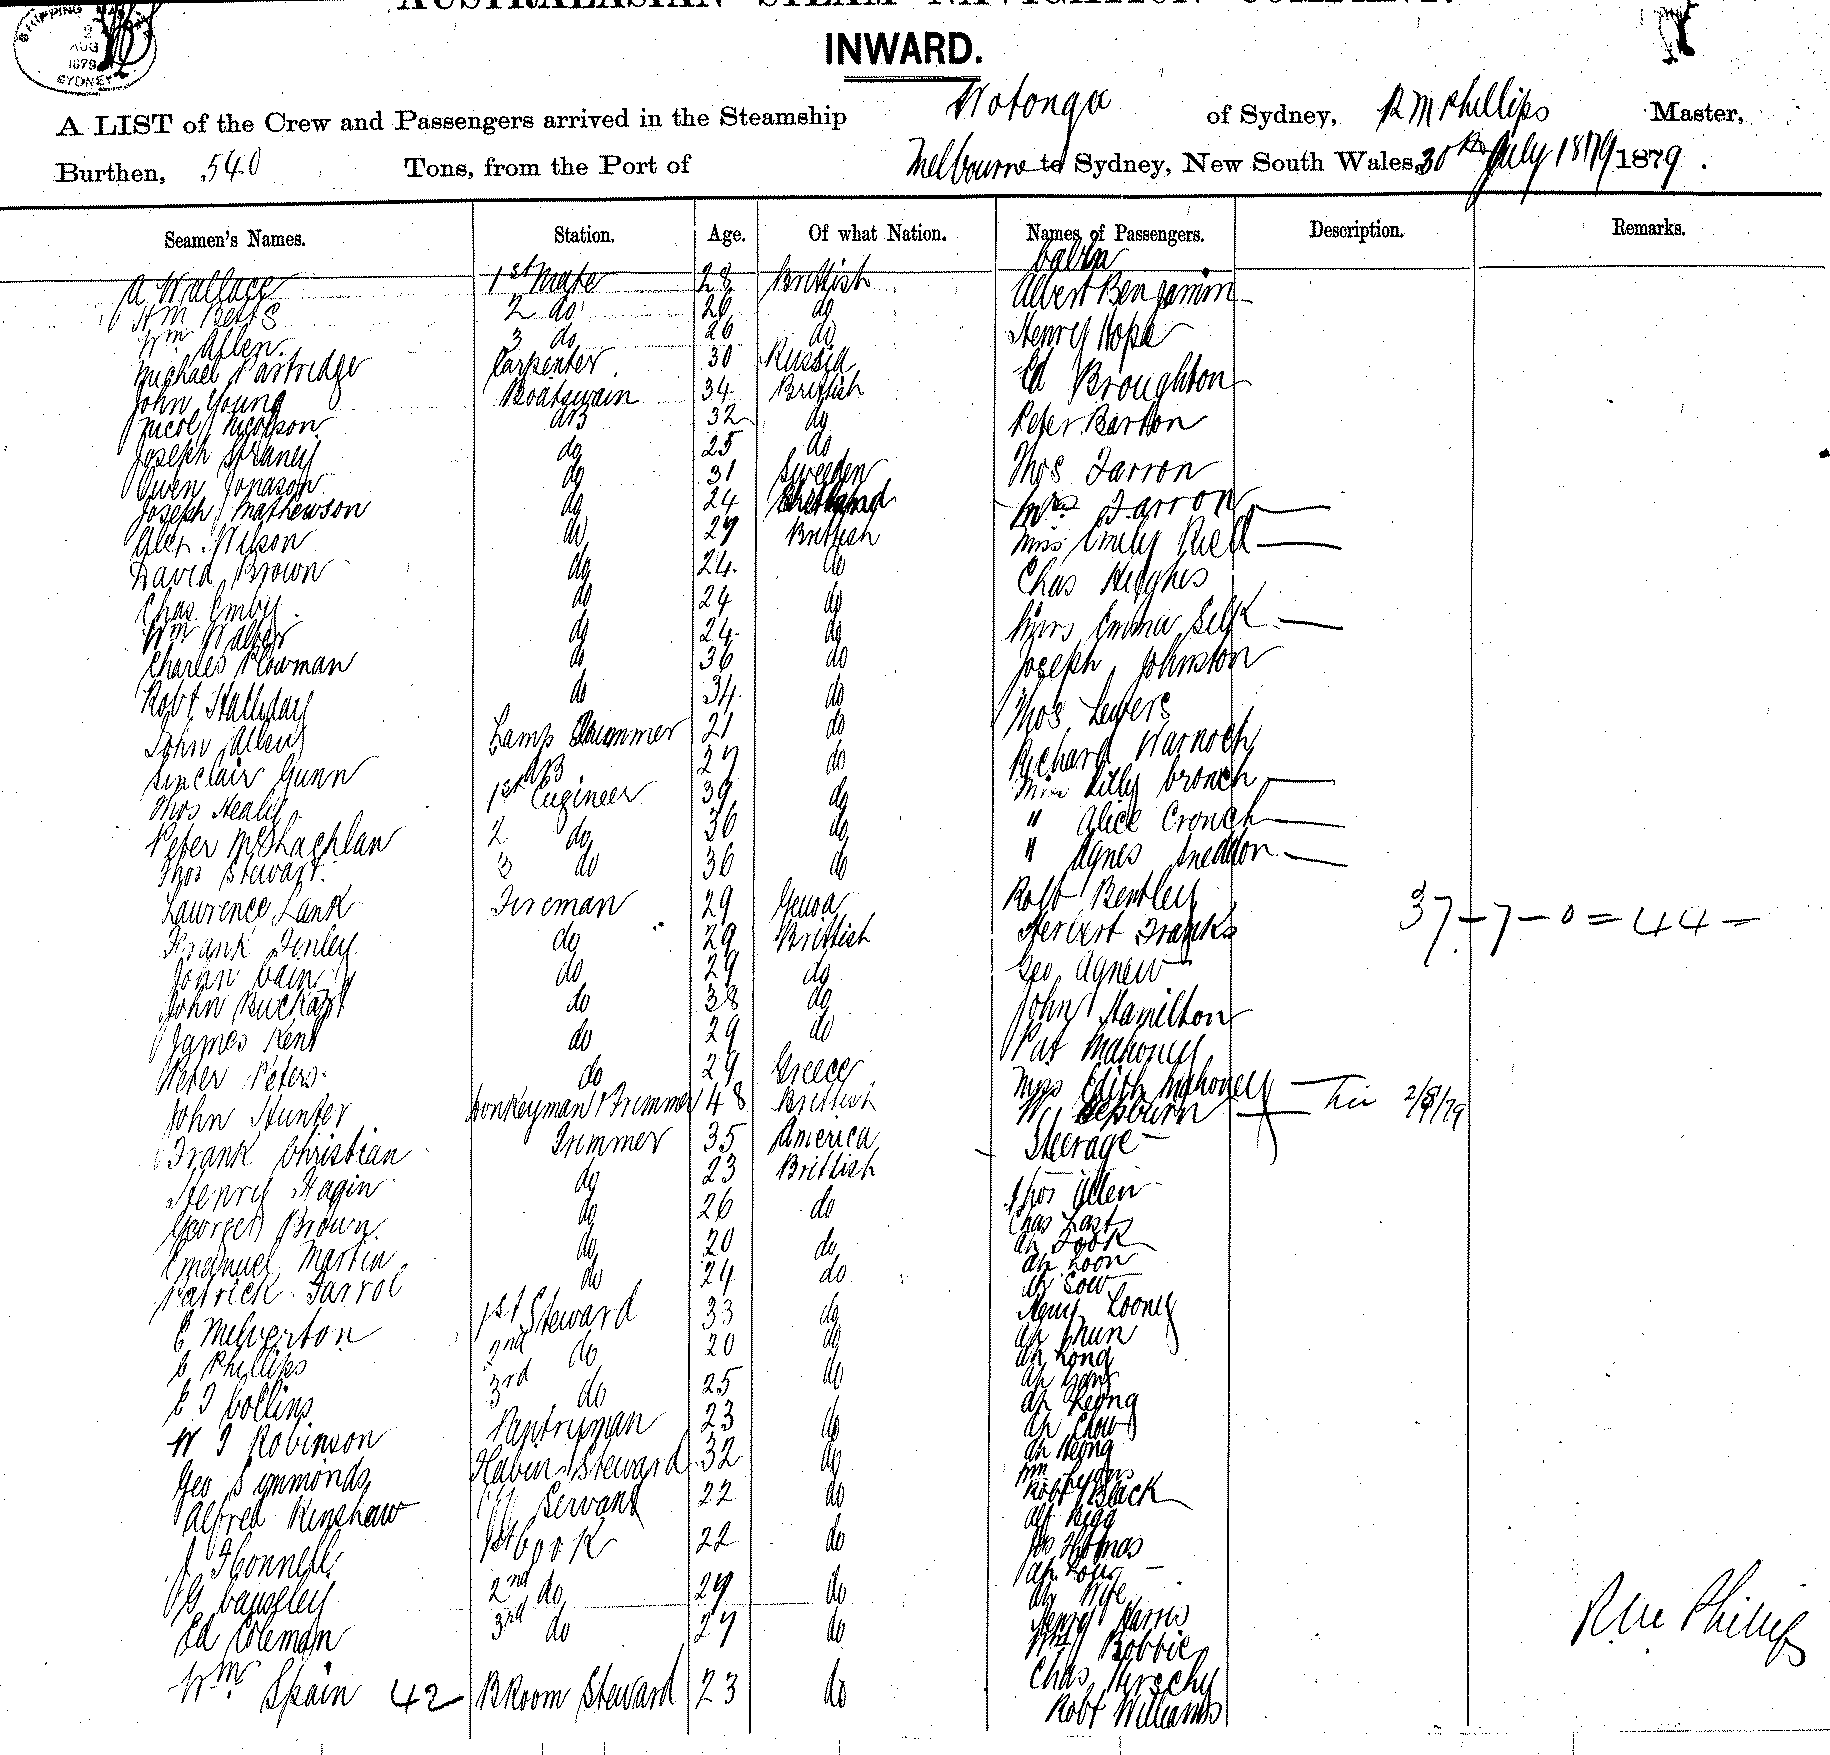 AUSTRALASIAN STEAM NAVIGATION COMPANY.
INWARD.
SHIPPING
2
AUG
1879
SYDNEY
A LIST of the Crew and Passengers arrived in the Steamship Wotonga of Sydney, R M Phillips Master,
Burthen, 540 Tons, from the Port of Melbourne to Sydney, New South Wales, 30th July 1879 1879.
Seamen's Names. Station. Age. Of what Nation. Names of Passengers. Description. Remarks.
Cabin
A Wallace 1st Mate 28 Brittish Albert Benjamin
Wm Betts 2 do 26 do
Wm Allen 3 do 26 do Henry Hope
Michael Partridge Carpenter 30 Russia
John Young Boatswain 34 Brittish Ed Broughton
Nicol Nicolson AB 32 do Peter Barton
Joseph do 25 do
Owen Jonason do 31 Sweden Thos Farron
Joseph Mathewson do 24 Shetland Mrs Farron
Alex. Wilson do 29 Brittish Miss Emily
David Brown do 24 do Chas Hughes
Chas do 24 do
Wm Walber do 24 do Emma Selk
Charles Plowman do 36 do Joseph Johnston
Robt Halliday do 34 do Thos Lewers
John Allen Lamp Trimmer 21 do Richard Warnock
Sinclair Gunn AB 27 do Miss Lilly Crouch
Thos Healy 1st Engineer 39 do " Alice Crouch
Peter McLachlan 2 do 36 do " Agnes Sneddon
Thos Stewart 3 do 36 do
Laurence Lank Fireman 29 Genoa Robt Bentley 37-7-0=44-
Frank Finley do 29 Brittish Herbert Franks
John Cain do 29 do Geo Agnew
John do 38 do John Hamilton
James Kent do 29 do Pat Mahoney
Peter Peters do 29 Greece Miss Edith Mahoney
John Hunter Donkeyman Trimmer 48 Brittish W Hepburn
Frank Christian Trimmer 35 America Steerage
Henry Hagin do 23 Brittish Thos Allen
George Brown do 26 do Chas Last
Ah Fook
Emanuel Martin do 20 do Ah Loon
Patrick Farrol do 24 do Ah Sow
C Milverton 1st Steward 33 do Henry Looney
Ah Chun
C Phillips 2nd do 20 do Ah Long
C T Collins 3rd do 25 do Ah Leong
W T Robinson Pantryman 23 do Ah Chow
Ah Heong
Geo Symmonds Steward 32 do Wm
Alfred Renshaw Servant 22 do Robt Black
Alf Rigg
J T Connell 1st Cook 22 do Jos Thomas
G Causeley 2nd do 29 do Wife
Ed Coleman 3rd do 27 do Henry Harris
Wm Bobbie
Wm Spain 42 B Room Steward 23 do Chas Hirschy
Robt Williams
R M Phillips